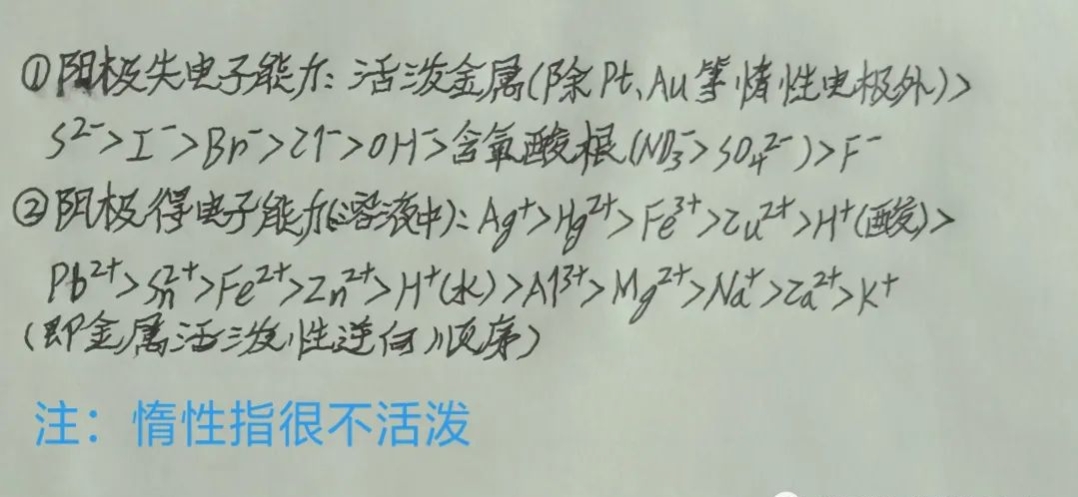 ①阳极失电子能力:活泼金属(除Pt、Au等惰性电极外)>
S²⁻>I⁻>Br⁻>Cl⁻>OH⁻>含氧酸根(NO₃⁻>SO₄²⁻)>F⁻
②阴极得电子能力(溶液中):Ag⁺>Hg²⁺>Fe³⁺>Cu²⁺>H⁺(酸)>
Pb²⁺>Sn²⁺>Fe²⁺>Zn²⁺>H⁺(水)>Al³⁺>Mg²⁺>Na⁺>Ca²⁺>K⁺
(即金属活泼性逆向顺序)
注:惰性指很不活泼